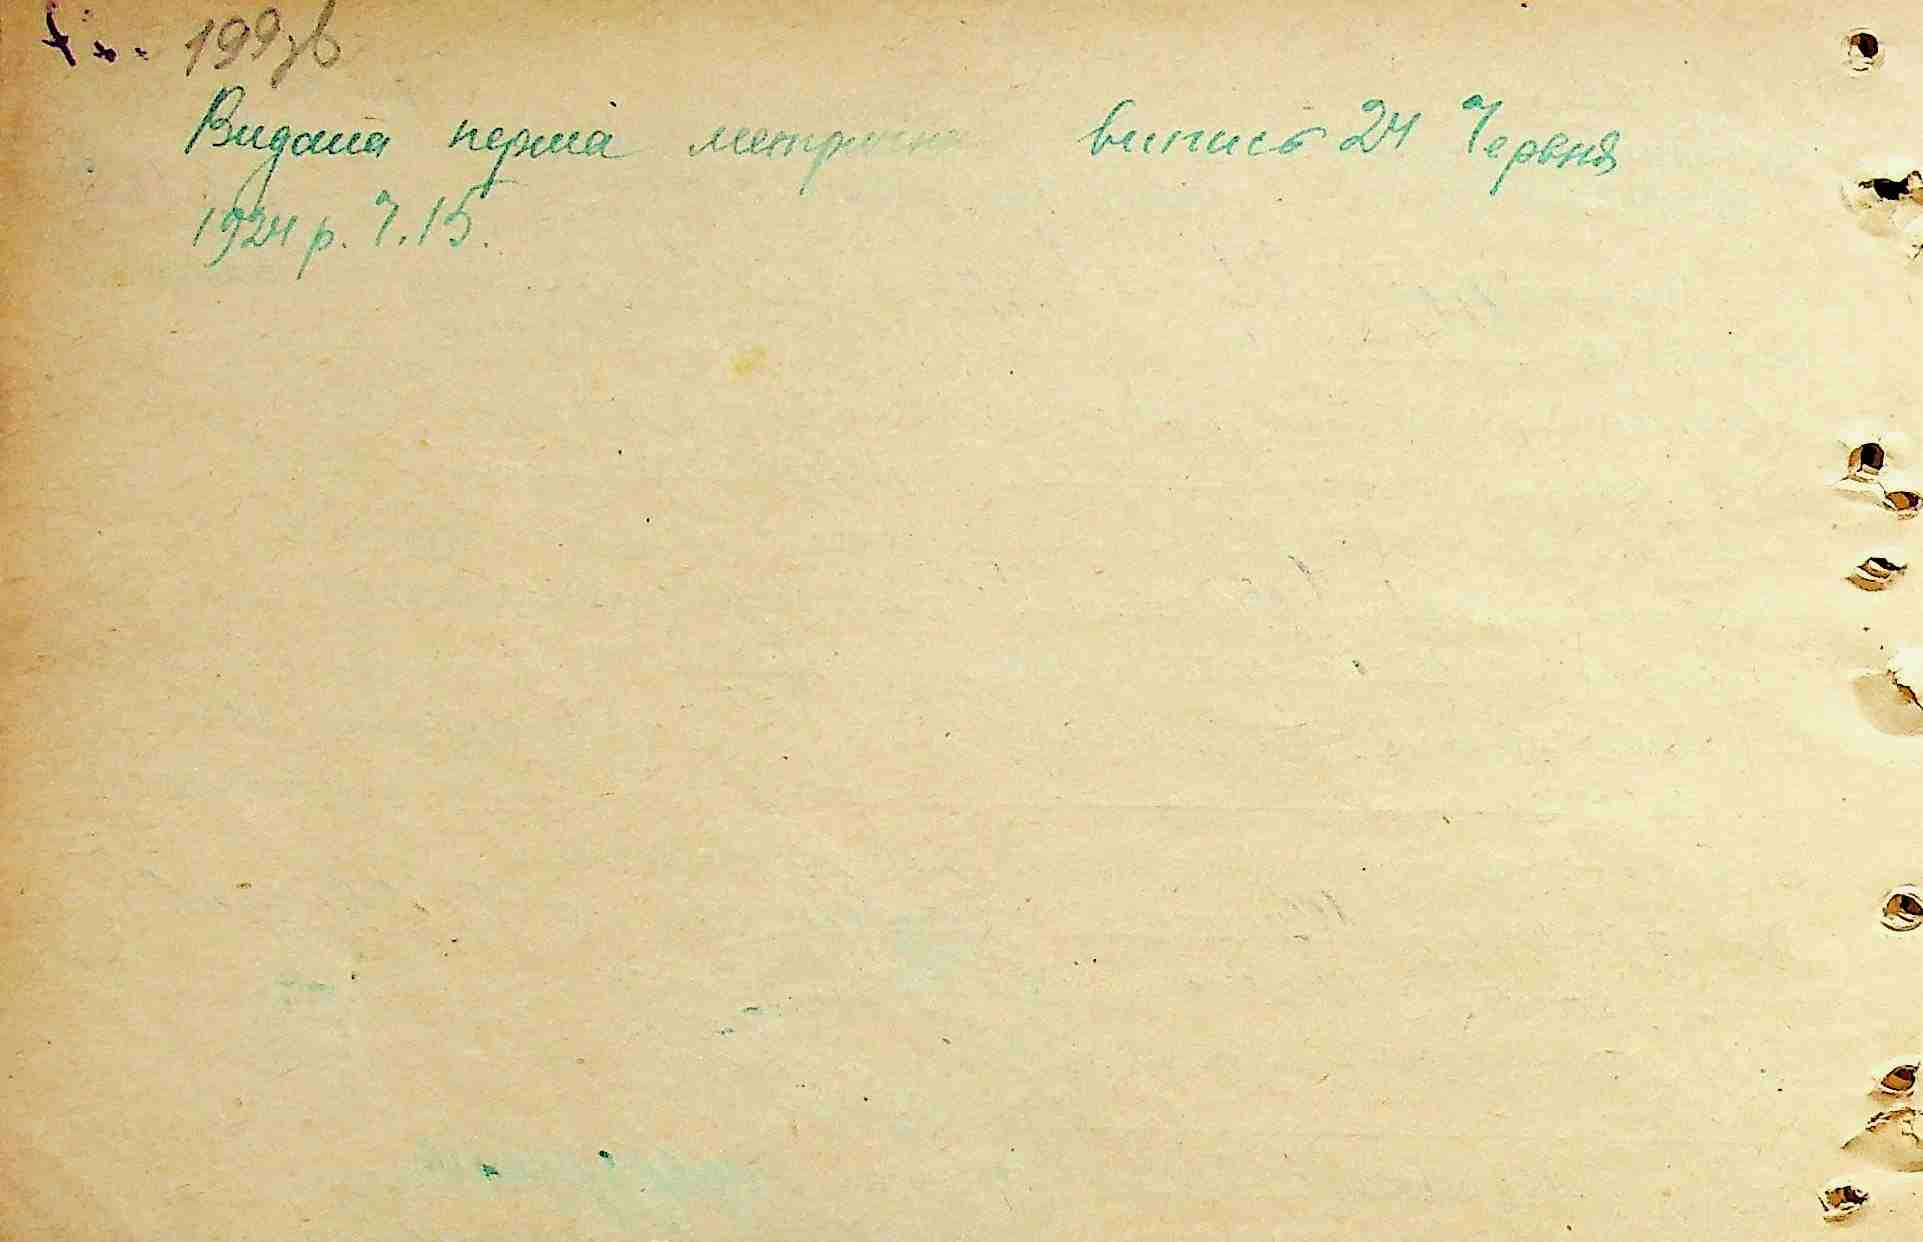 199зв
Видана перша метрична випись 24 Червня
1924 р. Ч. 15.